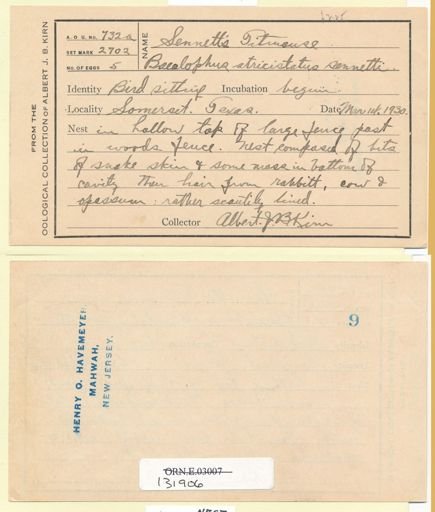 FROM THE
OOLOGICAL COLLECTION OF ALBERT J. B. KIRN
A. O. U. No. 732a
SET MARK 2702
No. OF EGGS 5
NAME
Sennett's Titmouse
Baeolophus atricristatus sennetti
Identity Bird sitting Incubation begun
Locality Somerset. Texas. Date Mar 14. 1930.
Nest in hollow top of large fence post
in woods fence. Nest composed of bits
of snake skin & some moss in bottom of
cavity then hair from rabbitt, cow &
opossum: rather scantily lined.
Collector Albert. J. B Kirn
HENRY O. HAVEMEYER
MAHWAH,
NEW JERSEY.
9
ORN.E.03007
131906